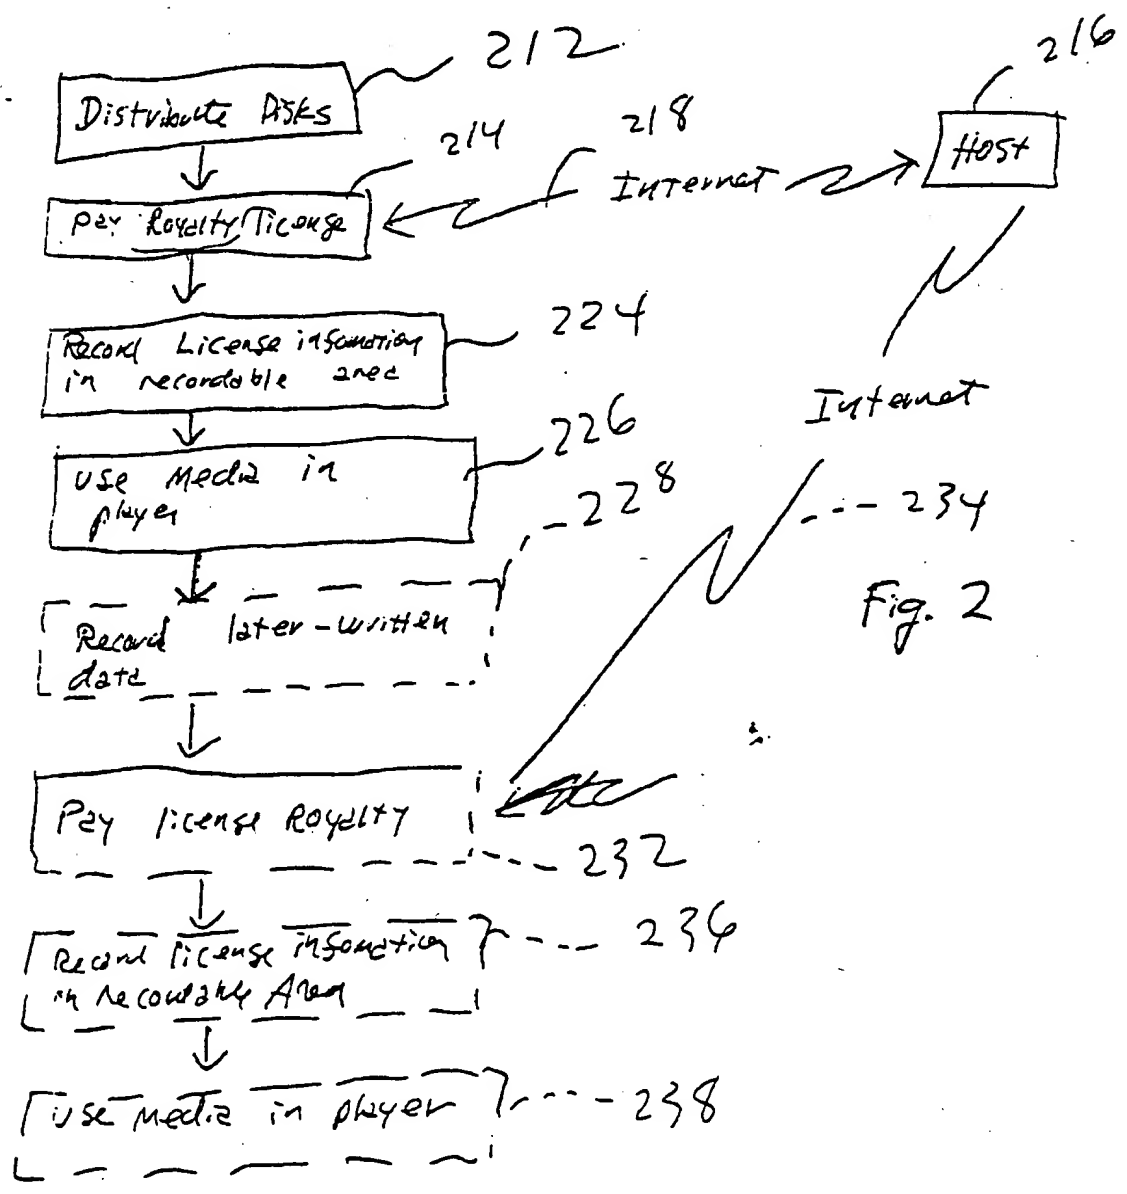 212
216
Distribute Disks
214
218
Host
Internet
Pay Royalty/license
224
Record License information
in recordable area
Internet
226
Use Media in
player
228
234
Fig. 2
Record later-written
data
Pay license Royalty
232
236
Record license information
in recordable Area
Use media in player
238